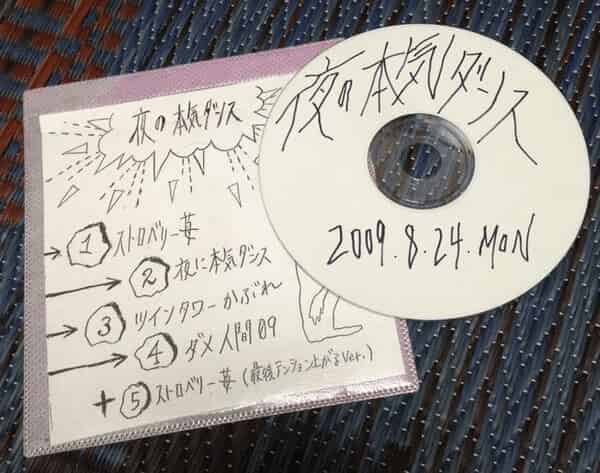 夜の本気ダンス
① ストロベリー苺
② 夜に本気ダンス
③ ツインタワーかぶれ
④ ダメ人間09
+⑤ ストロベリー苺(最後テンション上がるVer.)
夜の本気ダンス
2009.8.24.MON